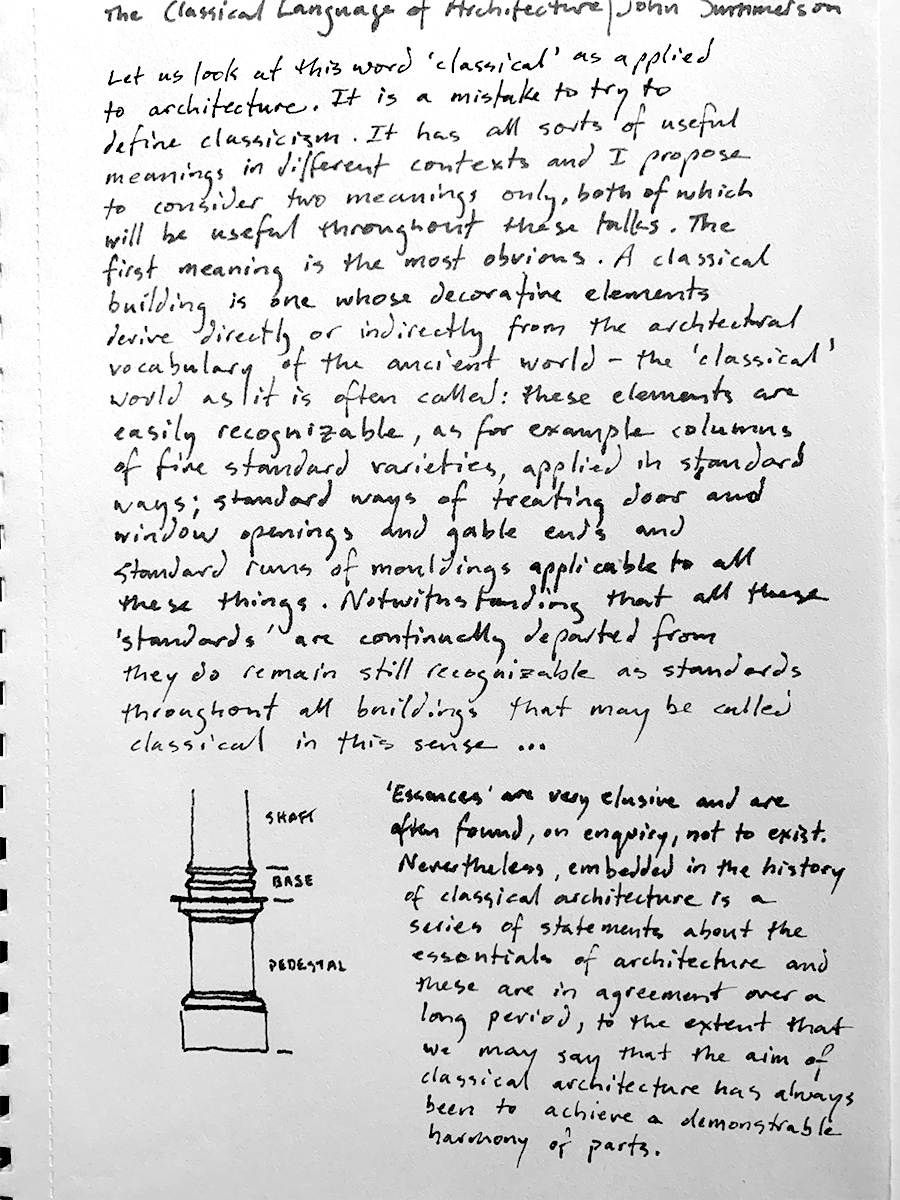 The Classical Language of Architecture / John Summerson
Let us look at this word 'classical' as applied
to architecture. It is a mistake to try to
define classicism. It has all sorts of useful
meanings in different contexts and I propose
to consider two meanings only, both of which
will be useful throughout these talks. The
first meaning is the most obvious. A classical
building is one whose decorative elements
derive directly or indirectly from the architectural
vocabulary of the ancient world – the 'classical'
world as it is often called: these elements are
easily recognizable, as for example columns
of five standard varieties, applied in standard
ways; standard ways of treating door and
window openings and gable ends and
standard runs of mouldings applicable to all
these things. Notwithstanding that all these
'standards' are continually departed from
they do remain still recognizable as standards
throughout all buildings that may be called
classical in this sense ...
SHAFT
BASE
PEDESTAL
'Essences' are very elusive and are
often found, on enquiry, not to exist.
Nevertheless, embedded in the history
of classical architecture is a
series of statements about the
essentials of architecture and
these are in agreement over a
long period, to the extent that
we may say that the aim of
classical architecture has always
been to achieve a demonstrable
harmony of parts.